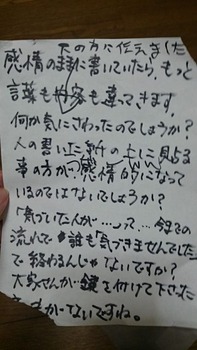 下の方に伝えました
感情のままに書いていたら、もっと
言葉も内容も違ってきます。
何か気にさわったのでしょうか?
人の書いた
事の方が、感情的になって
いるのではないでしょうか?
「気づいた人が…」って…今までの
流れで 誰も「気づきませんでした」
で終わるんじゃないですか?
大家さんか 鍵を付けて下さった
ないですね。